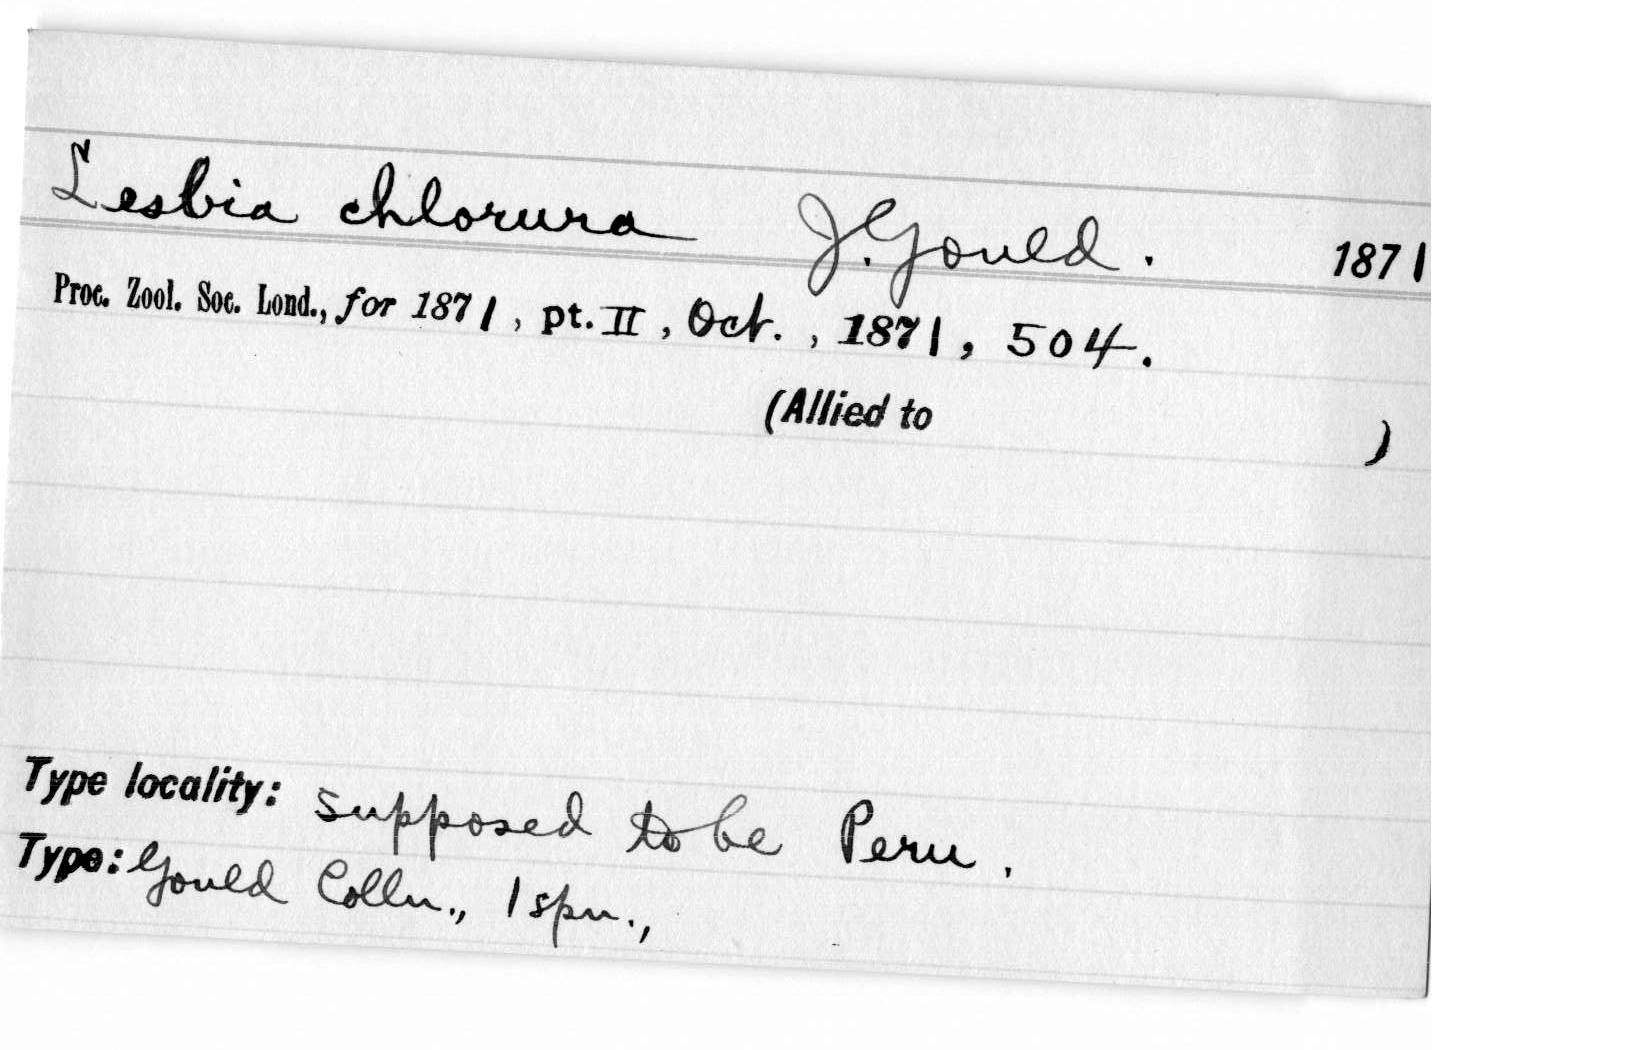 Lesbia chlorura J. Gould. 1871
Proc. Zool. Soc. Lond., for 1871, pt. II, Oct., 1871, 504.
(Allied to )
Type locality: supposed to be Peru.
Type: Gould Colln., 1 spn.,